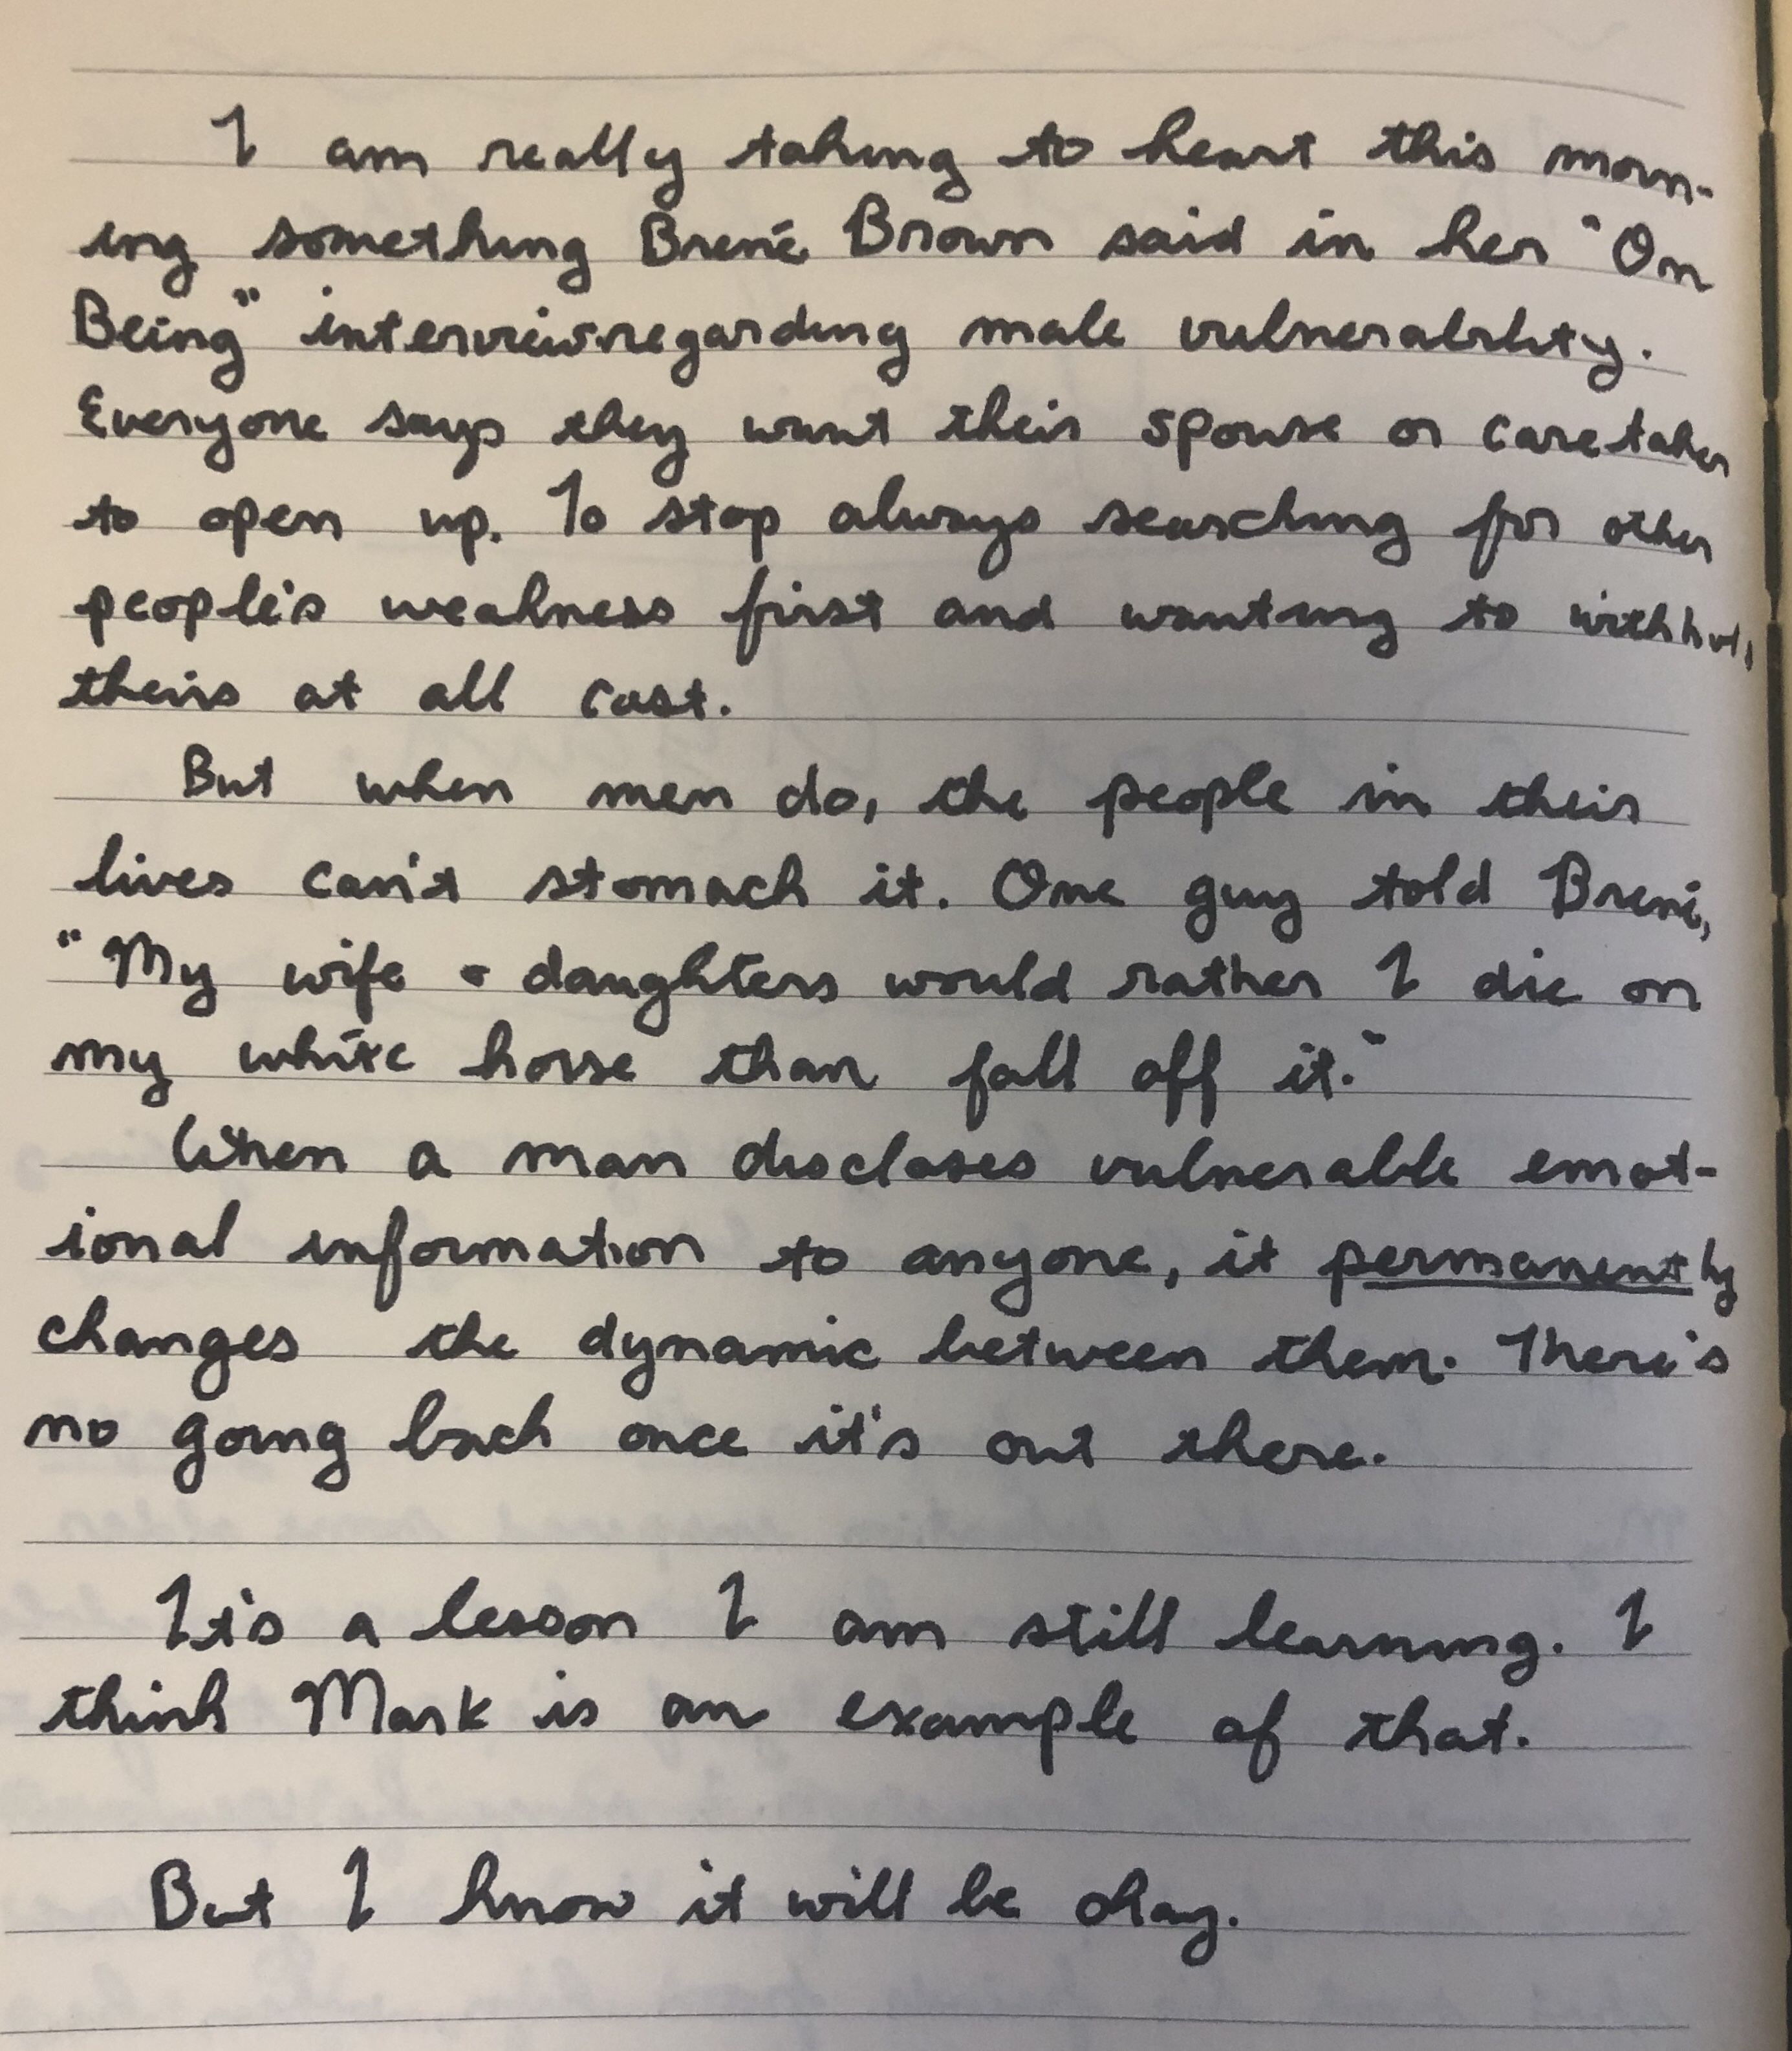 I am really taking to heart this morn-
ing something Brené Brown said in her "On
Being" interview regarding male vulnerability.
Everyone says they want their spouse or caretaker
to open up. To stop always searching for other
people's weakness first and wanting to withhold
theirs at all cost.
But when men do, the people in their
lives can't stomach it. One guy told Brené,
"My wife & daughters would rather I die on
my white horse than fall off it."
When a man discloses vulnerable emot-
ional information to anyone, it permanently
changes the dynamic between them. There's
no going back once it's out there.
It's a lesson I am still learning. I
think Mark is an example of that.
But I know it will be okay.